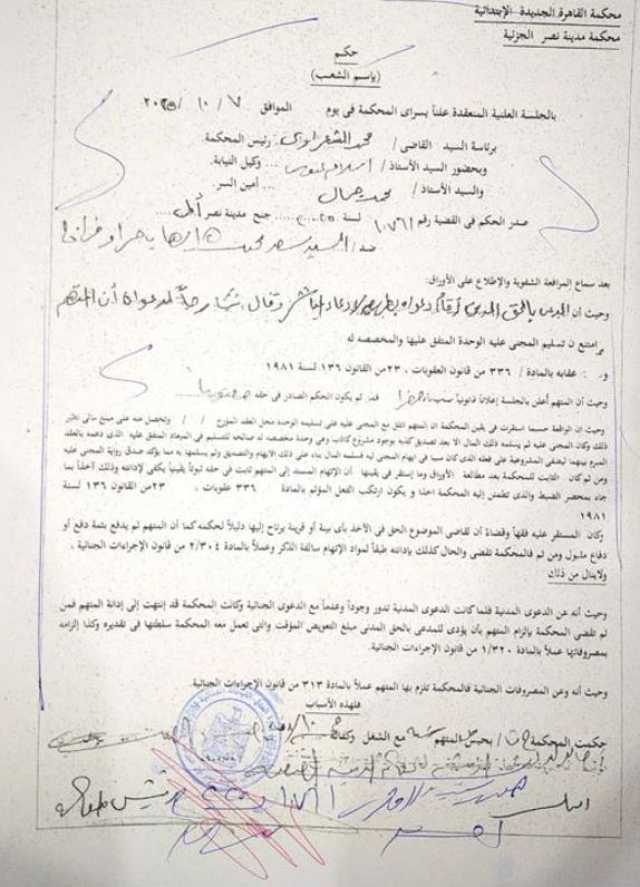 محكمة القاهرة الجديدة الإبتدائية
محكمة مدينة نصر الجزئية
حكم
(بإسم الشعب)
بالجلسة العلنية المنعقدة علناً بسراى المحكمة فى يوم الموافق ٧ / ١٠ /
برئاسة السيد القاضى / محمد الشعراوى رئيس المحكمة
وبحضور السيد الأستاذ / اسلام وكيل النيابة
والسيد الأستاذ / محمد جمال أمين السر
صدر الحكم فى القضية رقم ١٠٧٦١ لسنة جنح مدينة نصر أول
ضد / السيد سعد محمد
بعد سماع المرافعة الشفوية والإطلاع على الأوراق:
وحيث أن المدعى بالحق المدنى أقام دعواه بطريق الادعاء المباشر وقال شارحاً لدعواه أن المتهم
امتنع ن تسليم المجنى عليه الوحدة المتفق عليها والمخصصه له
عقابه بالمادة / ٣٣٦ من قانون العقوبات ، ٢٣من القانون ١٣٦ لسنة ١٩٨١
وحيث أن المتهم أعلن بالجلسة إعلاناً قانونياً فمـ ثم يكون الحكم الصادر فى حقه
وحيث ان الواقعة حسبما استقرت فى يقين المحكمة ان المتهم اتفق مع المجنى عليه على تسليمه الوحدة محل العقد المؤرخ / / وتحصل منه على مبلغ مالى نظير
ذلك وكان المجنى عليه لم يسلمه ذلك المال الا بعد تصديق كذبه بوجود مشروع كاذب وهى وحدة مخصصه له صالحه للتسليم فى الميعاد المتفق عليه الذى دعمه بالعقد
المبرم بينهما ليضفى المشروعية على فعله الذى كان سببا فى ايهام المجنى عليه فسلمه المال بناء على ذلك الايهام والتصديق ولم يسلمها به مما يؤكد صدق رواية المجنى عليه
ومن ثم كان الثابت للمحكمة بعد مطالعة الأوراق وما إستقر فى يقينها أن الإتهام المسند إلى المتهم ثابت فى حقه ثبوتاً يقينياً يكفى لإدانته وذلك أخذاً بما
جاء بمحضر الضبط والذى تطمئن إليه المحكمة اخذا و يكون ارتكب الفعل المؤثم بالمادة ٣٣٦ عقوبات ، ٢٣من القانون ١٣٦ لسنة
١٩٨١
وكان المستقر عليه فقهاً وقضاءً أن لقاضى الموضوع الحق فى الأخذ بأى بينة أو قرينة يرتاح إليها دليلاً لحكمه كما أن المتهم لم يدفع بثمة دفع أو
دفاع مقبول ومن ثم فالمحكمة تقضى والحال كذلك بإدانته طبقاً لمواد الإتهام سالفة الذكر وعملاً بالمادة ٢/٣٠٤ من قانون الإجراءات الجنائية .
ولاينال من ذلك
وحيث أنه عن الدعوى المدنية فلما كانت الدعوى المدنية تدور وجوداً وعدماً مع الدعوى الجنائية وكانت المحكمة قد إنتهت إلى إدانة المتهم فمن
ثم تقضى المحكمة بإلزام المتهم بأن يؤدى للمدعى بالحق المدنى مبلغ التعويض المؤقت والتى تعمل معه المحكمة سلطتها فى تقديره وكذا إلزامه
بمصروفاتها عملاً بالمادة ١/٣٢٠ من قانون الإجراءات الجنائية.
وحيث أنه وعن المصروفات الجنائية فالمحكمة تلزم بها المتهم عملاً بالمادة ٣١٣ من قانون الإجراءات الجنائية.
فلهذه الأسباب
حكمت المحكمة / بحبس المتهم سنة مع الشغل وكفالة